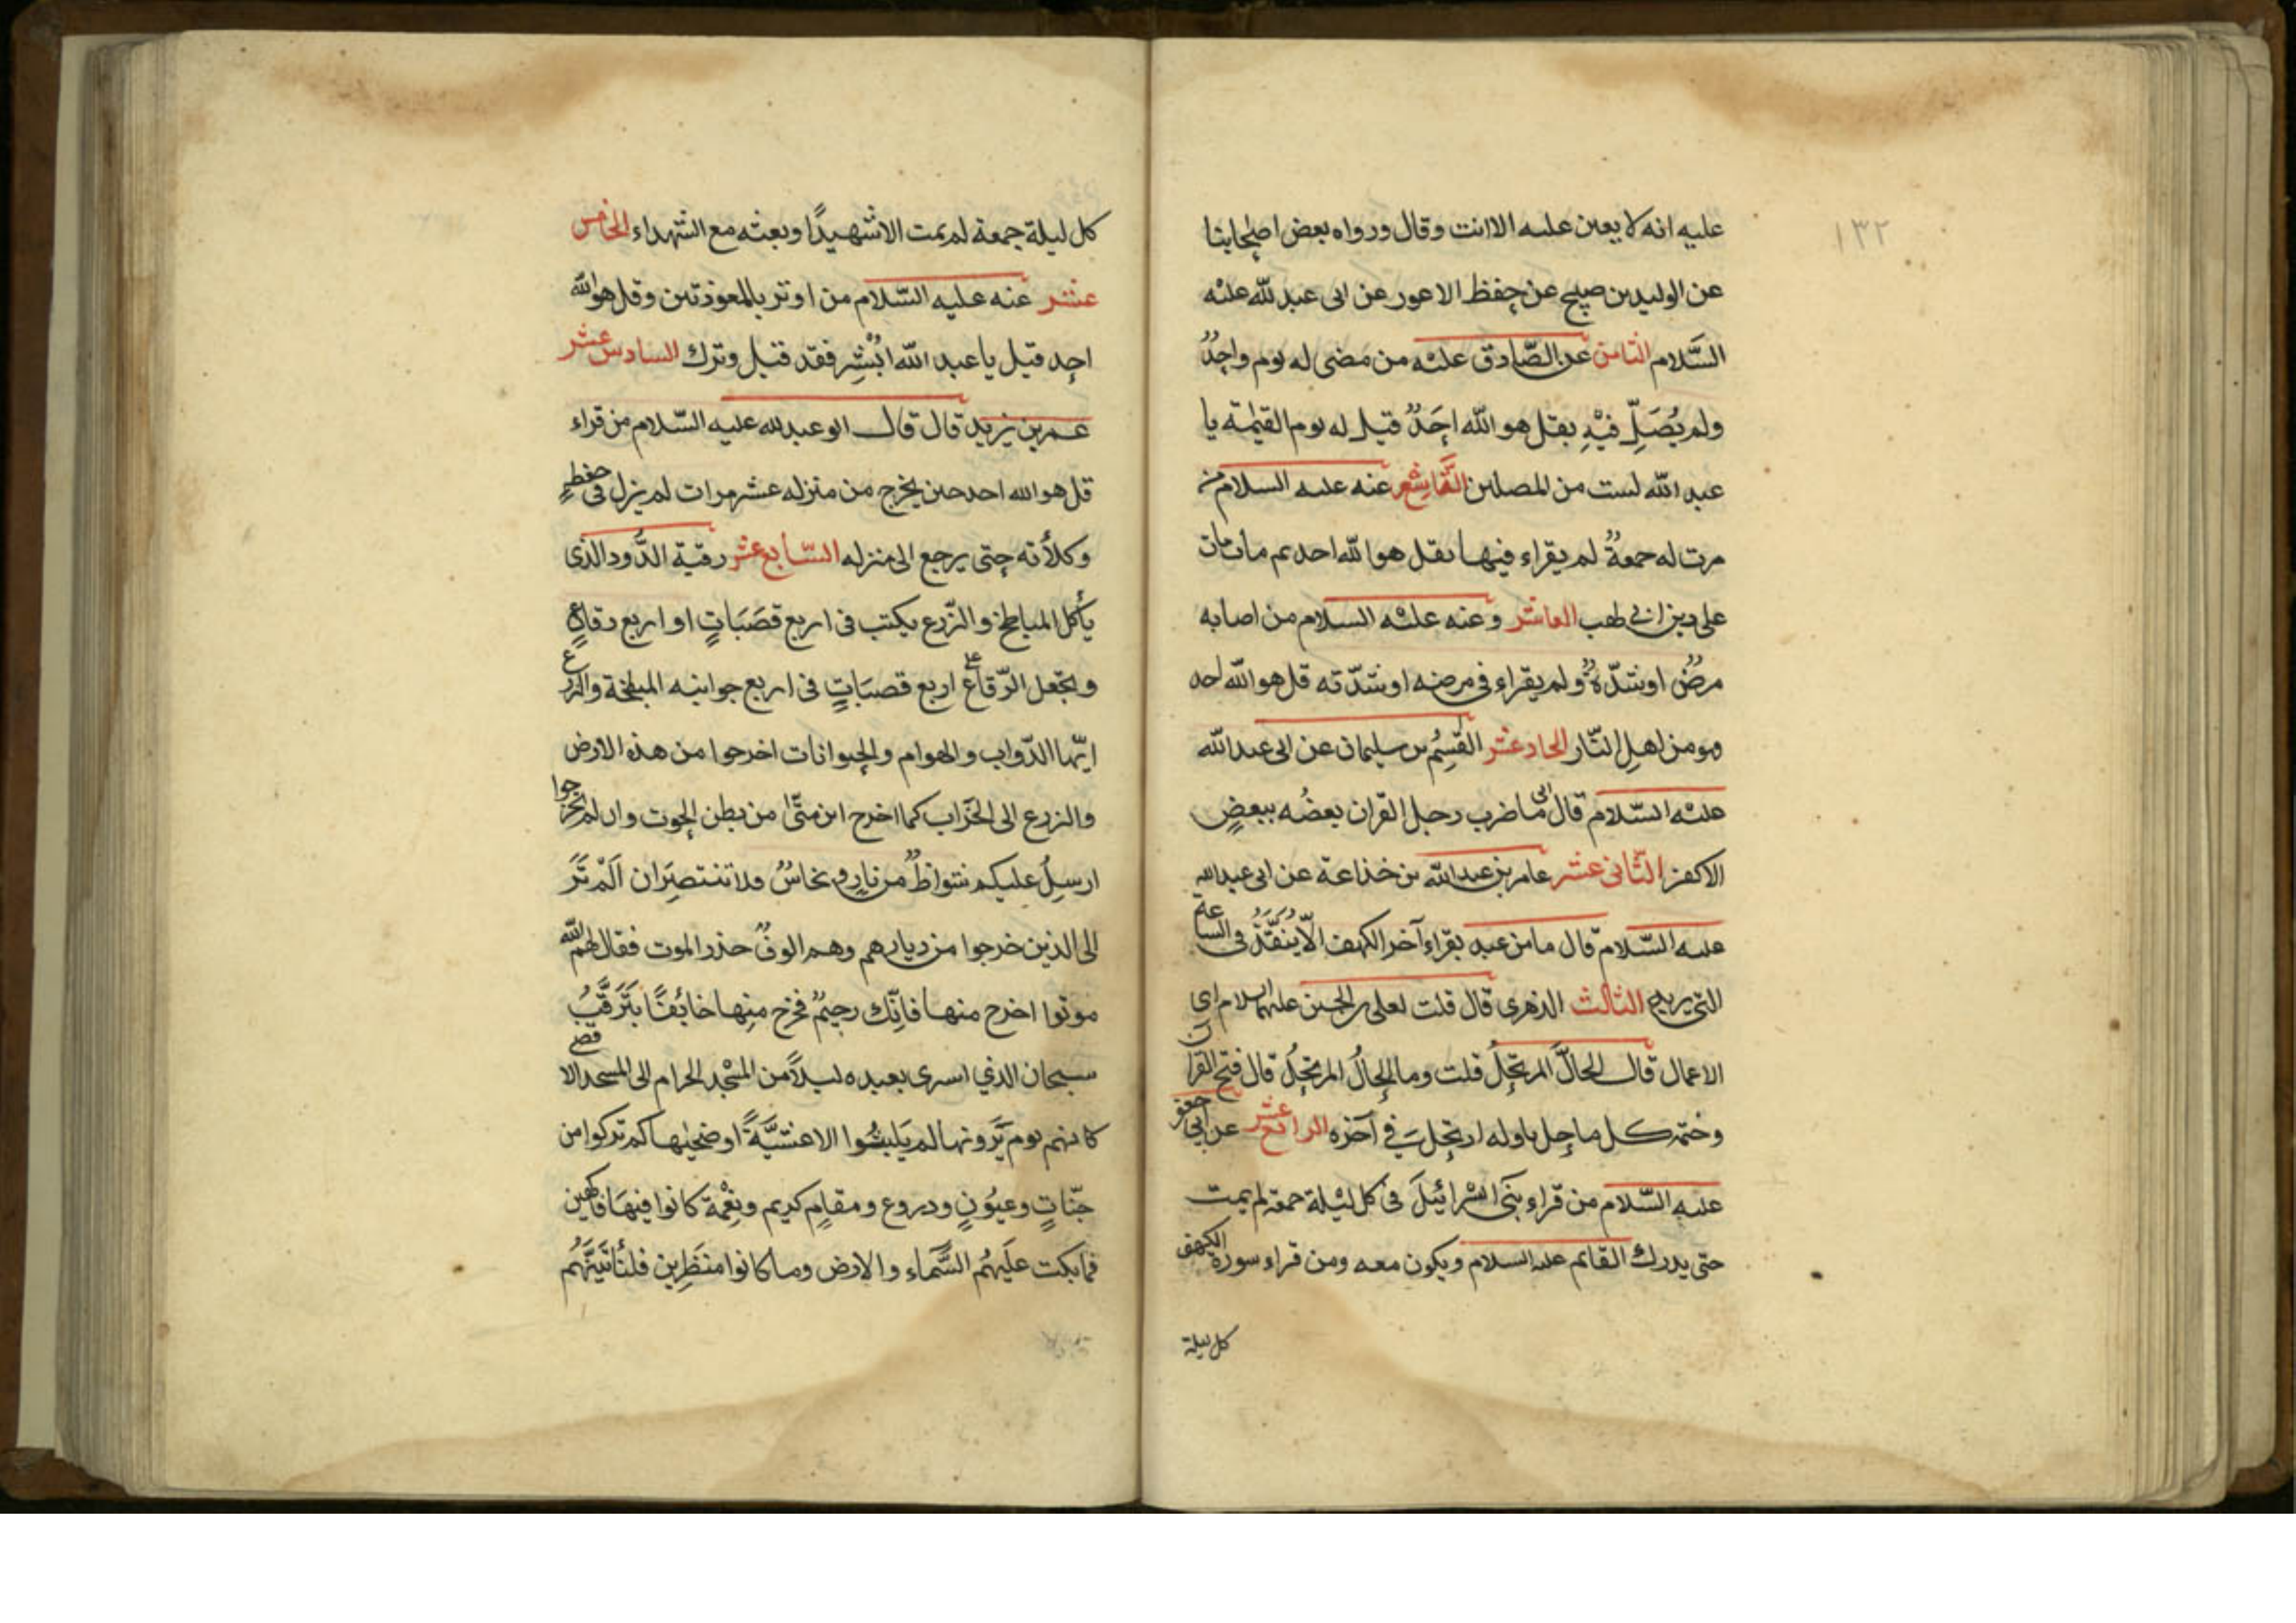 ١٣٢
عليه انه لا يعين عليه الا انت وقال ورواه بعض اصحابنا
عن الوليد بن صبيح عن حفظ الاعور عن ابى عبد لله عليه
السَّلام الثامن عن الصّادق عليه من مضى له يوم واحِدٌ
ولم يُصَلِّ فيْهِ بقل هو الله احَدٌ قيل له يوم القيٰمة يا
عبد الله لست من المصلين التّاسع عنه عليه السلام من
مرت له جمعةٌ لم يقراء فيها بقل هو الله احد ثم مات مات
على دين ابي لهب العاشر وعنه عليْه السلام من اصابه
مرضٌ او شدّةٌ ولم يقراء فى مرضه او شدّته قل هو الله احد
فهو من اهلِ النّار الحاد عشر القٰسِمُ بن سليمان عن ابى عبد الله
عليْه السّلام قال ابى ما ضرب رجل القران بعضُه ببعضٍ
الا كفر الثّانى عشر عامر بن عبد الله بن خذاعة عن ابى عبد الله
عليه السّلام قال ما من عبد يقراء آخر الكهف الّا يَتَقّظُ فى الساعة
التى يريد الثالث الذهرى قال قلت لعلى بن الحسين عليهما السلام اى
الاعمال قال الحالُّ المرتحِلُ قلت وما الحالُّ المرتحِلُ قال فتح القرآن
وختمه كل ما حل باوله ارتحل فى آخره الرابع عشر عن ابي جعفر
عليه السّلام من قراء بنَى اسْرائيلَ فى كل ليْلة جمعة لم يمت
حتى يدرك القائم عليه السلام ويكون معه ومن قراء سورة الكهف
كل ليلة
كل ليلة جمعة لم يمت الا شهيدًا وبعثه مع الشهداء الخامس
عشر عنه عليه السّلام من اوتر بالمعوذتين وقل هو الله
احد قيل يا عبد الله ابْشِر فقد قبل وترك السادس عشر
عمر بن يزيد قال قال ابو عبد لله عليه السّلام من قراء
قل هو الله احد حين يخرج من منزله عشر مرات لم يزل فى حفظهِ
وكلأته حتى يرجع الى منزله السّابع عشر رقية الدُّود الذى
يأكل المباطخ والزّرع يكتب فى اربع قصَبَاتٍ او اربع رقاعٍ
ويجعل الرّقاع على اربع قصبَاتٍ فى اربع جوانبه المبطخة والزرع
ايّها الدّواب والهوام والحيوانات اخرجوا من هذه الارض
والزرع الى الخَراب كما اخرج ابن متّى من بطن الحوت وان لم تخرجوا
ارسِلُ عليكم شواظٌ من نارٍ ونحاسٌ فلا تنتصِرَان اَلَمْ تَرَ
الى الذين خرجوا من ديارهم وهم الوفٌ حذر الموت فقال لهم الله
موتوا اخرج منها فانّك رجيمٌ فخرج منها خائفًا يَتَرَقَّبُ
سبحان الذي اسرى بعبده ليلاً من المسْجد الحرام الى المسجد الاقصى
كانهم يوم يَرَونها لم يَلبثُوا الا عشيَّةً او ضحيٰها كم تركوا من
جنّاتٍ وعيُوْنٍ ودروع ومقامٍ كريم ونِعْمة كانوا فيهَا فاكهين
فما بكت علَيهُم السَّمَاء والارض وما كانوا منظَرين فلنأتينَّهُم